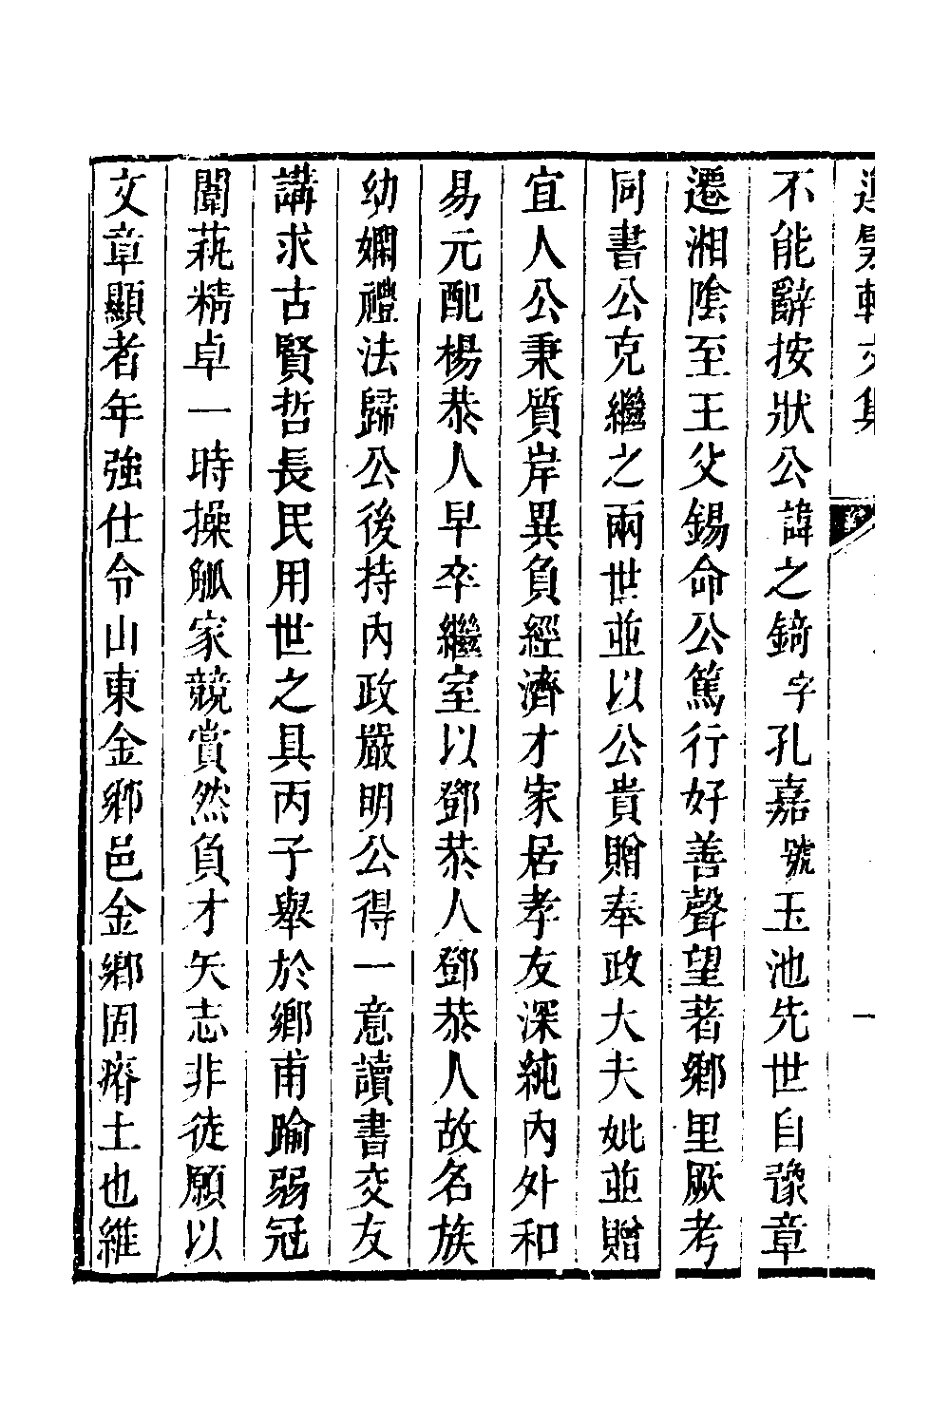 不能辭按狀公諱之錡字孔嘉號玉池先世自豫章
遷湘陰至王父錫命公篤行好善聲望著鄉里厥考
同書公克繼之兩世並以公貴贈奉政大夫妣並贈
宜人公秉質岸異負經濟才家居孝友深純內外和
易元配楊恭人早卒繼室以鄧恭人鄧恭人故名族
幼嫻禮法歸公後持內政嚴明公得一意讀書交友
講求古賢哲長民用世之具丙子舉於鄉甫踰弱冠
闈蓺精卓一時操觚家競賞然負才矢志非徒願以
文章顯者年強仕令山東金鄉邑金鄉固瘠土也維